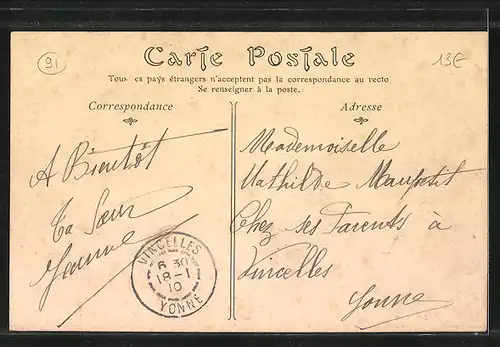 91
13E
Carte Postale
Tous les pays étrangers n'acceptent pas la correspondance au recto
Se renseigner à la poste.
Correspondance
Adresse
A Bientôt
Ta Sœur
Jeanne
VINCELLES
6 30
18-1
10
YONNE
Mademoiselle
Mathilde Maupetit
Chez ses Parents à
Vincelles
Yonne